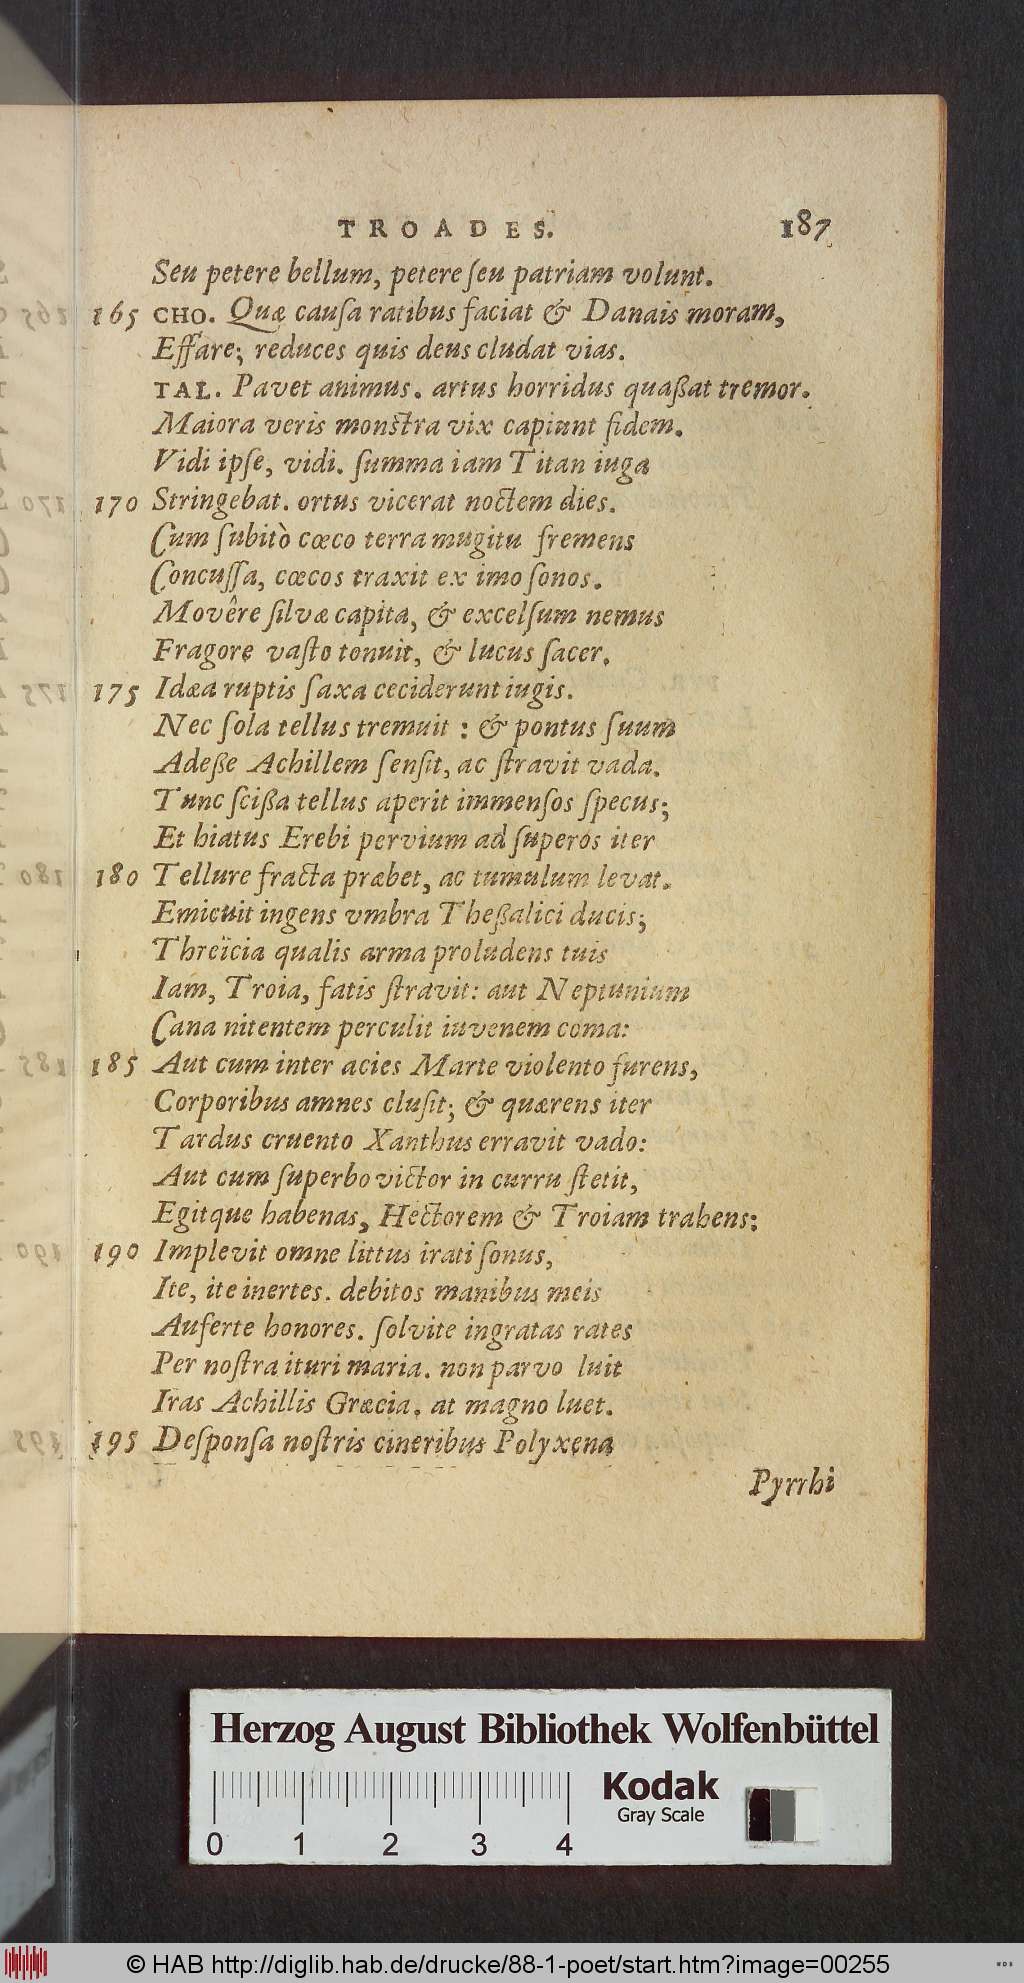 TROADES. 187
Seu petere bellum, petere ſeu patriam volunt.
165 CHO. Quæ cauſa ratibus faciat & Danais moram,
Effare; reduces quis deus cludat vias.
TAL. Pavet animus. artus horridus quaßat tremor.
Maiora veris monſtra vix capiunt fidem.
Vidi ipſe, vidi. ſumma iam Titan iuga
170 Stringebat. ortus vicerat noctem dies.
Cum ſubitò cœco terra mugitu fremens
Concuſſa, cœcos traxit ex imo ſonos.
Movêre ſilvæ capita, & excelſum nemus
Fragore vaſto tonuit, & lucus ſacer.
175 Idæa ruptis ſaxa ceciderunt iugis.
Nec ſola tellus tremuit : & pontus ſuum
Adeße Achillem ſenſit, ac ſtravit vada.
Tunc ſcißa tellus aperit immenſos ſpecus;
Et hiatus Erebi pervium ad ſuperos iter
180 Tellure fracta præbet, ac tumulum levat.
Emicuit ingens vmbra Theßalici ducis;
Threïcia qualis arma proludens tuis
Iam, Troia, fatis ſtravit: aut Neptunium
Cana nitentem perculit iuvenem coma:
185 Aut cum inter acies Marte violento furens,
Corporibus amnes cluſit; & quærens iter
Tardus cruento Xanthus erravit vado:
Aut cum ſuperbo victor in curru ſtetit,
Egitque habenas, Hectorem & Troiam trahens:
190 Implevit omne littus irati ſonus,
Ite, ite inertes. debitos manibus meis
Auferte honores. ſolvite ingratas rates
Per noſtra ituri maria. non parvo luit
Iras Achillis Græcia. at magno luet.
195 Deſponſa noſtris cineribus Polyxena
Pyrrhi
Herzog August Bibliothek Wolfenbüttel
Kodak
Gray Scale
0 1 2 3 4
© HAB http://diglib.hab.de/drucke/88-1-poet/start.htm?image=00255